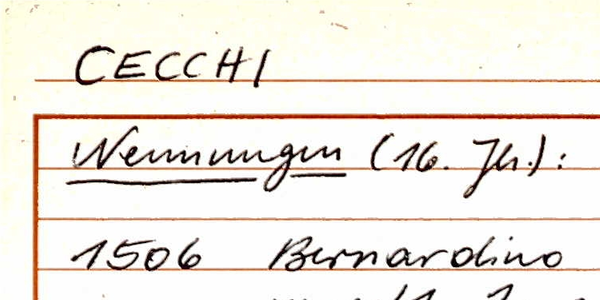 CECCHI
Nennungen (16. Jh.):
1506 Bernardino